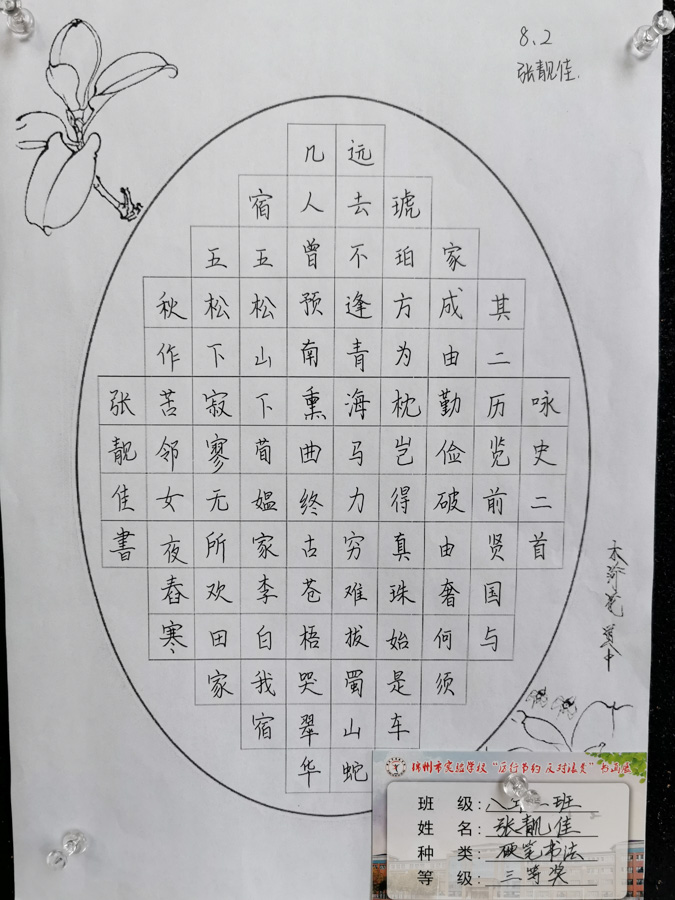 8.2
张靓佳.
咏史二首
其二历览前贤国与
家成由勤俭破由奢何须
琥珀方为枕岂得真珠始是车
远去不逢青海马力穷难拔蜀山蛇
几人曾预南熏曲终古苍梧哭翠华
宿五松山下荀媪家李白我宿
五松下寂寥无所欢田家
秋作苦邻女夜舂寒
张靓佳書
锦州市实验学校“厉行节约 反对浪费”书画展
班 级：八 班
姓 名：张靓佳
种 类：硬笔书法
等 级：三等奖